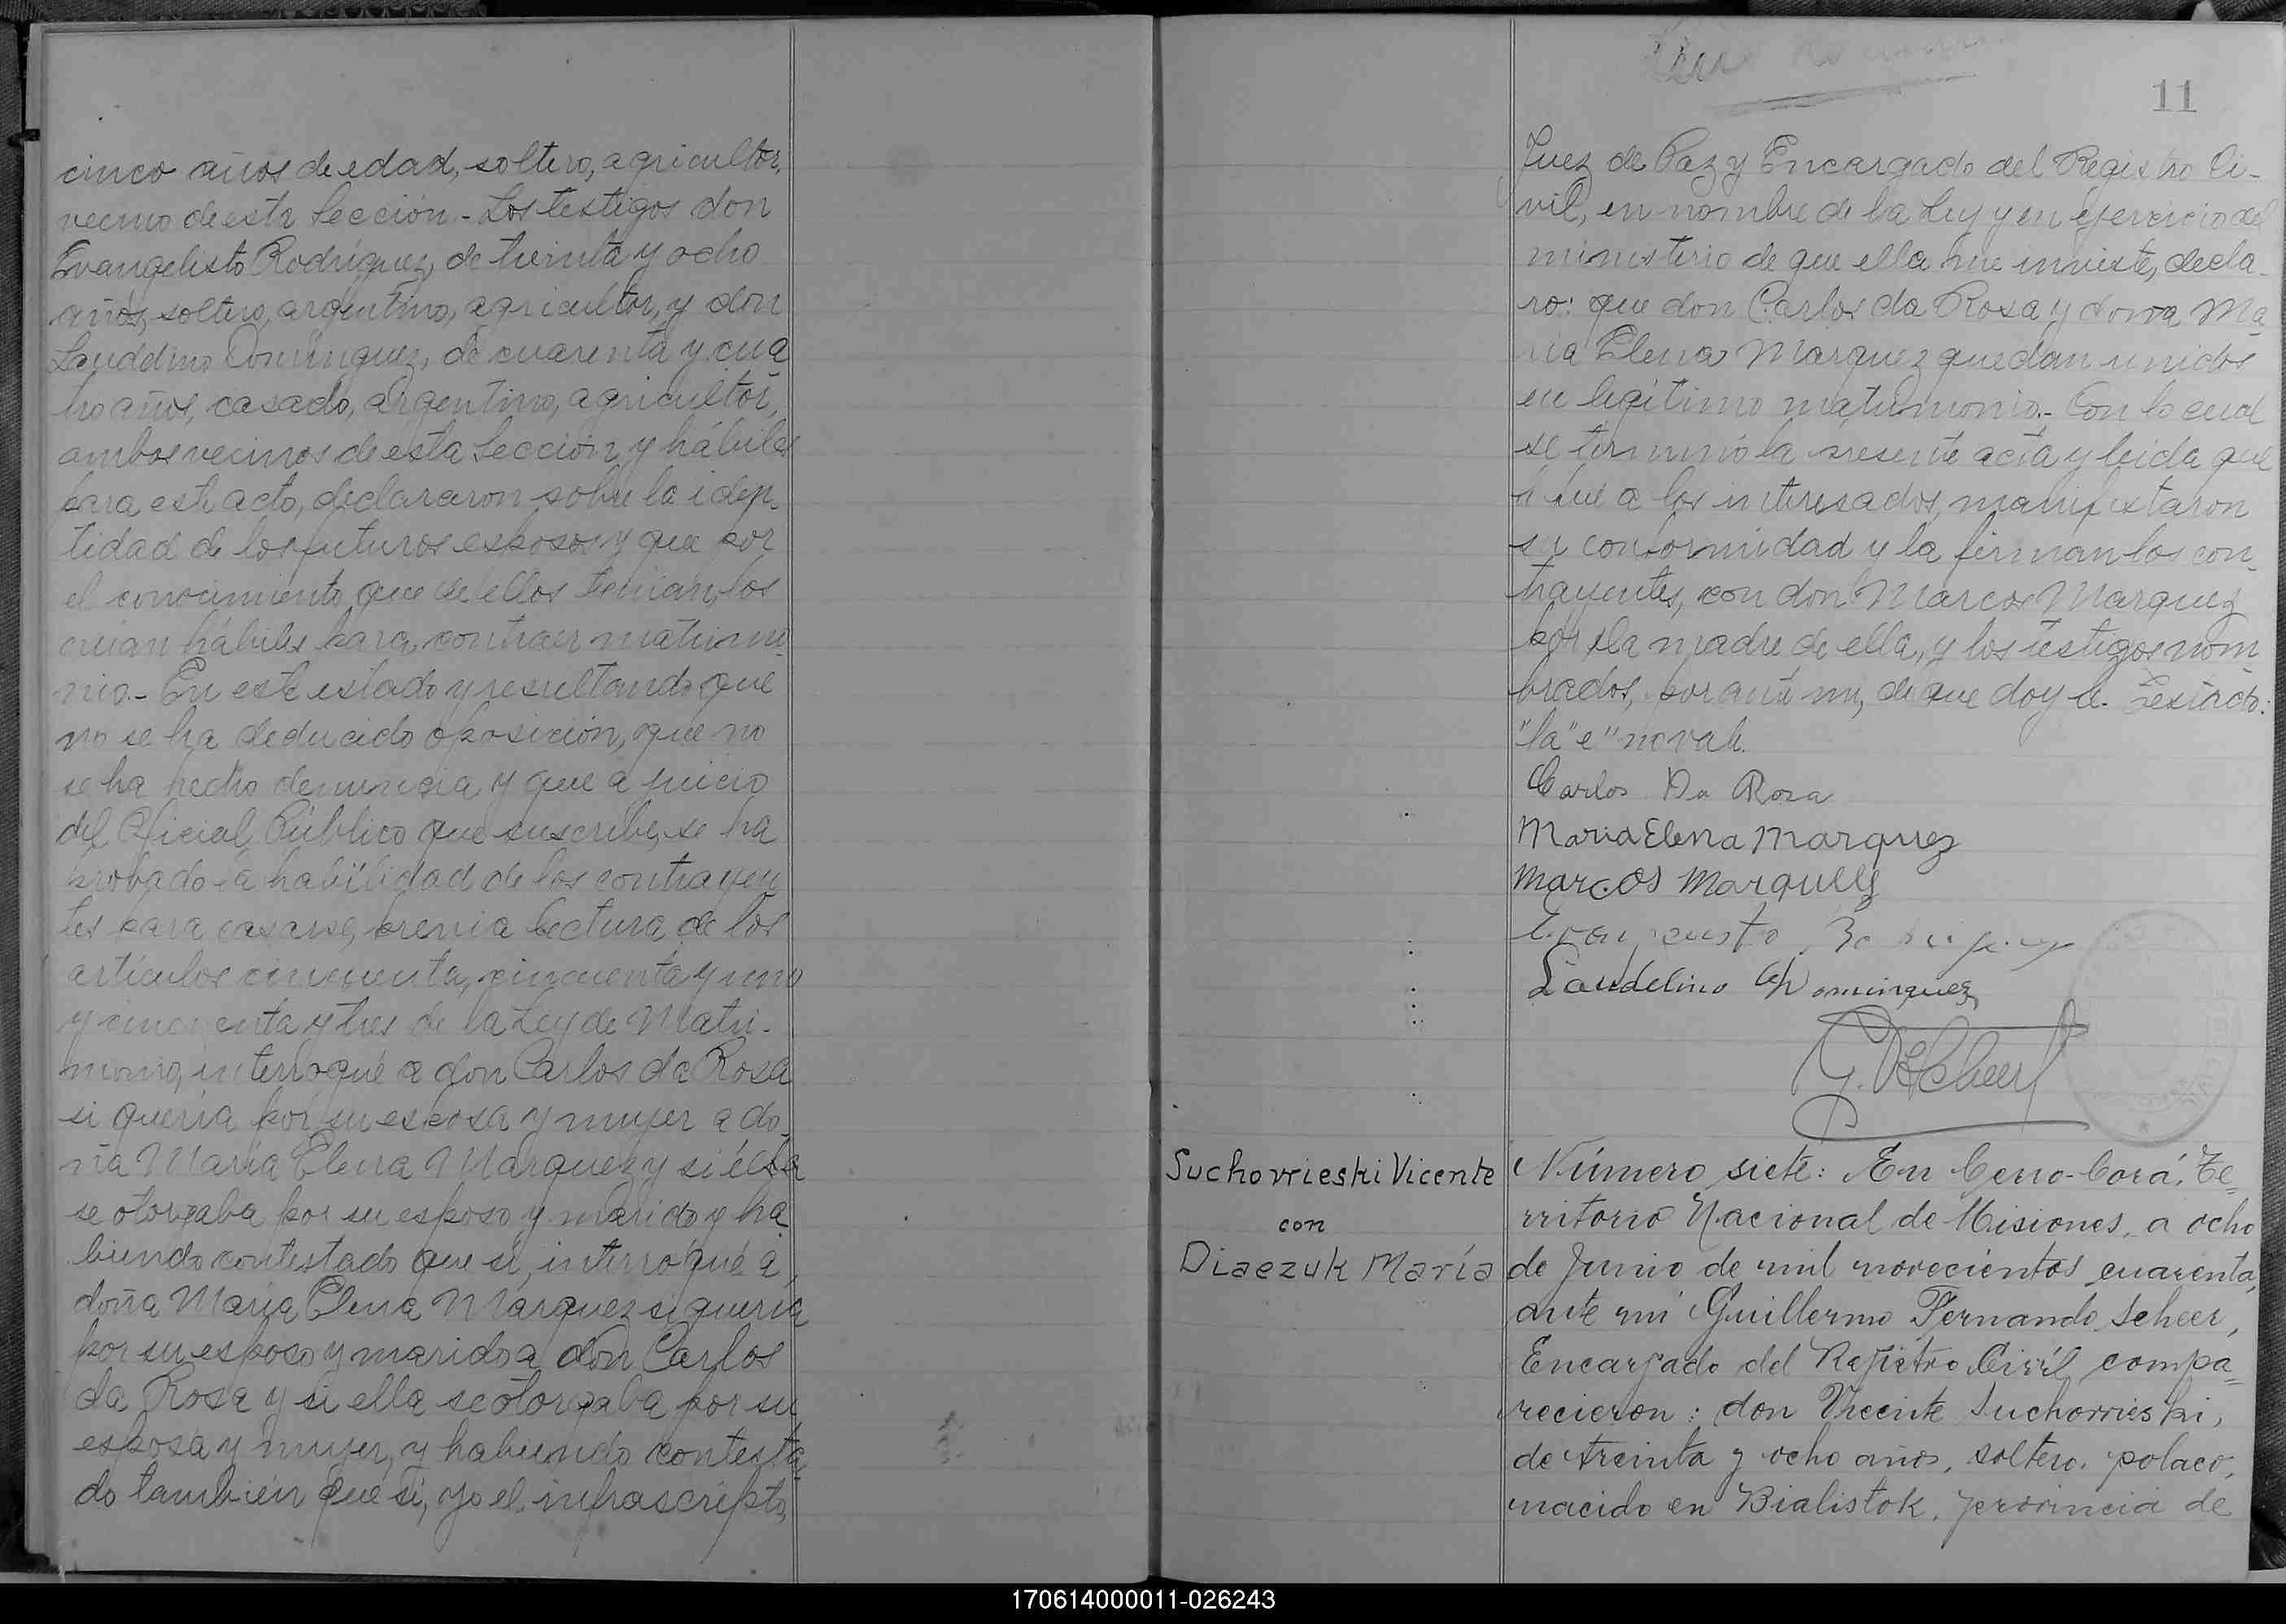 cinco años de edad, soltero, agricultor,
vecino de esta Sección.- Los testigos don
Evangelisto Rodríguez, de treinta y ocho
años, soltero, argentino, agricultor, y don
Lauddino Domínguez, de cuarenta y cua
tro años, casado, argentino, agricultor,
ambos vecinos de esta Sección y hábiles
para este acto, declararon sobre la iden-
tidad de los futuros esposos y que por
el conocimiento que de ellos tenian, los
creian hábiles para contraer matrimo
nio.- En este estado y resultando que
no se ha deducido oposición, que no
se ha hecho denuncia y que a juicio
del Oficial Público que suscribe, se ha
probado la habilidad de los contrayen
tes para casarse, previa lectura de los
artículos cincuenta, cincuenta y uno
y cincuenta y tres de la Ley de Matri-
monio, interrogué a don Carlos da Rosa
si quería por su esposa y mujer a do-
ña María Elena Marquez y si ésta
se otorgaba por su esposo y marido y ha
biendo contestado que si, interrogué a
doña María Elena Marquez si quería
por su esposo y marido a don Carlos
da Rosa y si ella se otorgaba por su
esposa y mujer, y habiendo contesta
do también que si, yo el infrascripto,
11
Juez de Paz y Encargado del Registro Ci-
vil, en nombre de la Ley y en ejercicio del
ministerio de que ella me inviste, decla-
ro: que don Carlos da Rosa y doña Ma
ria Elena Marquez quedan unidos
en legítimo matrimonio.- Con lo cual
se terminó la presente acta y leida que
fué a los interesados, manifestaron
su conformidad y la firman los con-
trayentes, con don Marcos Marquez
por la madre de ella, y los testigos nom
brados, por ante mi, de que doy fe. Testado:
"la" e" no vale.
Carlos Da Rosa
Maria Elena Marquez
Marcos Marquez
Laudelino Dominguez
G. F. Scheer
Suchovrieski Vicente
con
Diaezuk María
Número siete: En Cerro-Corá, Te=
rritorio Nacional de Misiones, a ocho
de Junio de mil novecientos cuarenta,
ante mi Guillermo Fernando Scheer,
Encargado del Registro Civil, compa=
recieron: don Vicente Suchovrieski,
de treinta y ocho años, soltero, polaco,
nacido en Bialistok, provincia de
170614000011-026243